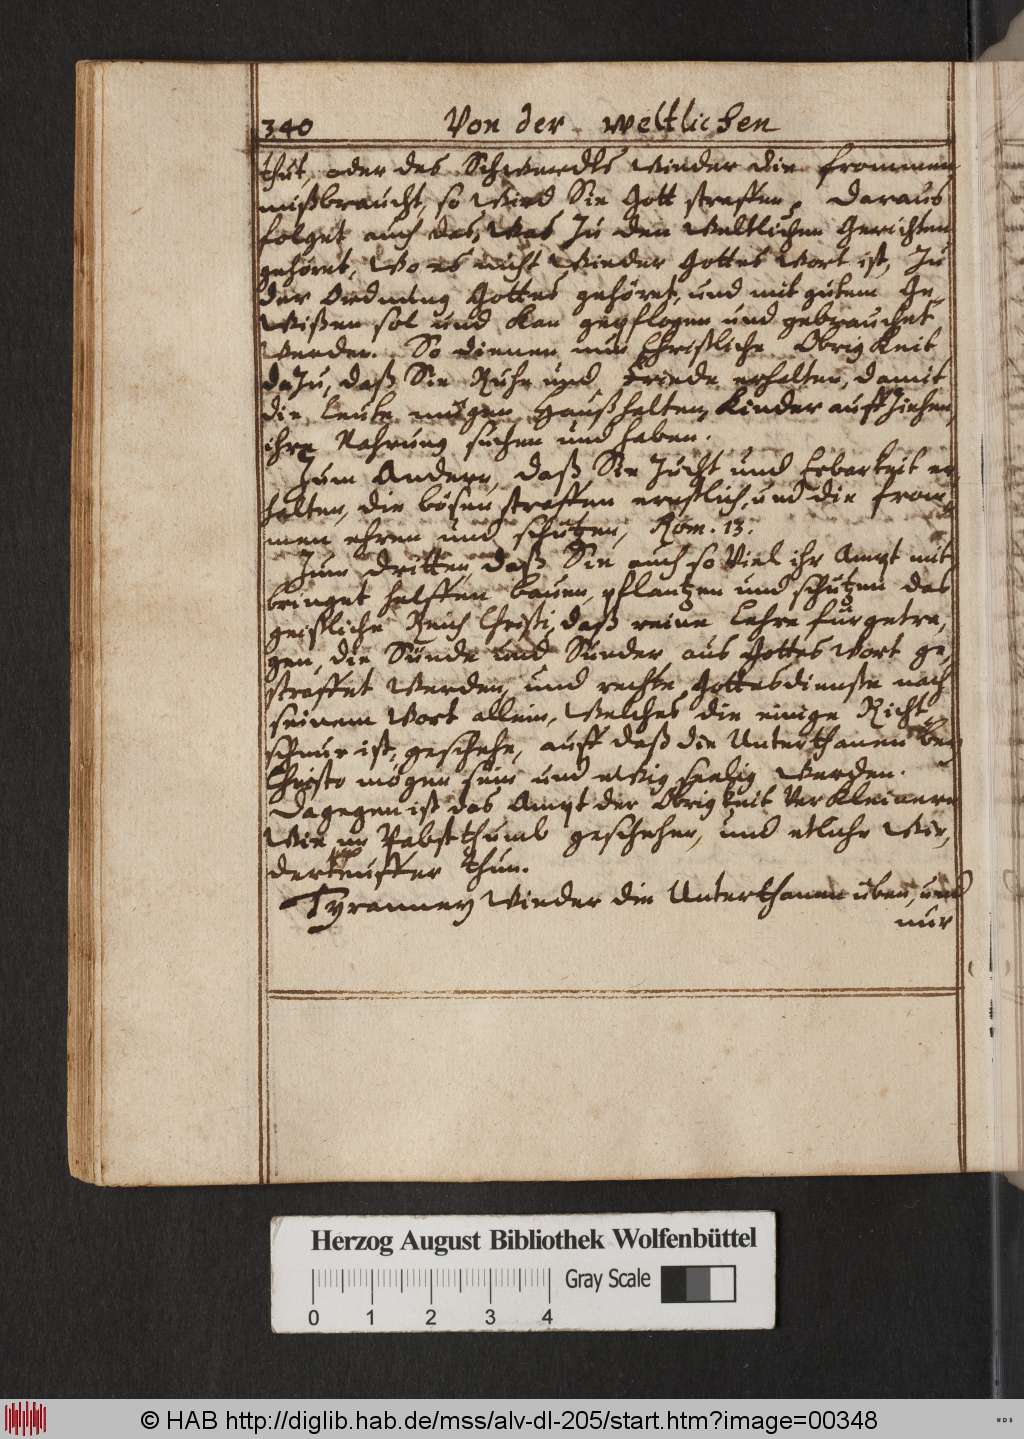 340 Von der weltlichen
thut, oder des Schwerdts wieder die frommen
mißbraucht, so wird Sie Gott straffen. Daraus
folget auch das, was zu den weltlichen Gerichten
gehöret, wo es nicht wieder Gottes wort ist, zu
der Ordnung Gottes gehöret, und mit gutem Ge-
wißen sol und kan gepflogen und gebrauchet
werden. So dienen nun Christliche Obrigkeit
dazu, daß Sie Ruhe und Friede erhalten, damit
die leute mögen Haußhalten, Kinder auffziehen,
ihre Nahrung suchen und haben.
Zum Andern, daß Sie zucht und Erbarkeit er-
halten, die bösen straffen ernstlich, und die from-
men ehren und schützen, Röm. 13.
Zum dritten, daß Sie auch so viel ihr Ampt mit
bringet helffen bauen, pflantzen und schützen das
geistliche Reich Christi, daß reine Lehre fürgetra-
gen, die Sünde und Sünder aus Gottes wort ge-
straffet werden, und rechte Gottesdienste nach
seinem wort allein, welches die einige Richt-
schnur ist, geschehe, auff daß die Unterthanen bey
Christo mögen sein und ewig seelig werden.
Dagegen ist das Ampt der Obrigkeit verkleinern
wie im Pabstthumb geschehen, und etliche Wie-
derteuffer thun.
Tyranney wieder die Unterthanen üben, und
nur
Herzog August Bibliothek Wolfenbüttel
Gray Scale
0 1 2 3 4
© HAB http://diglib.hab.de/mss/alv-dl-205/start.htm?image=00348
WDB